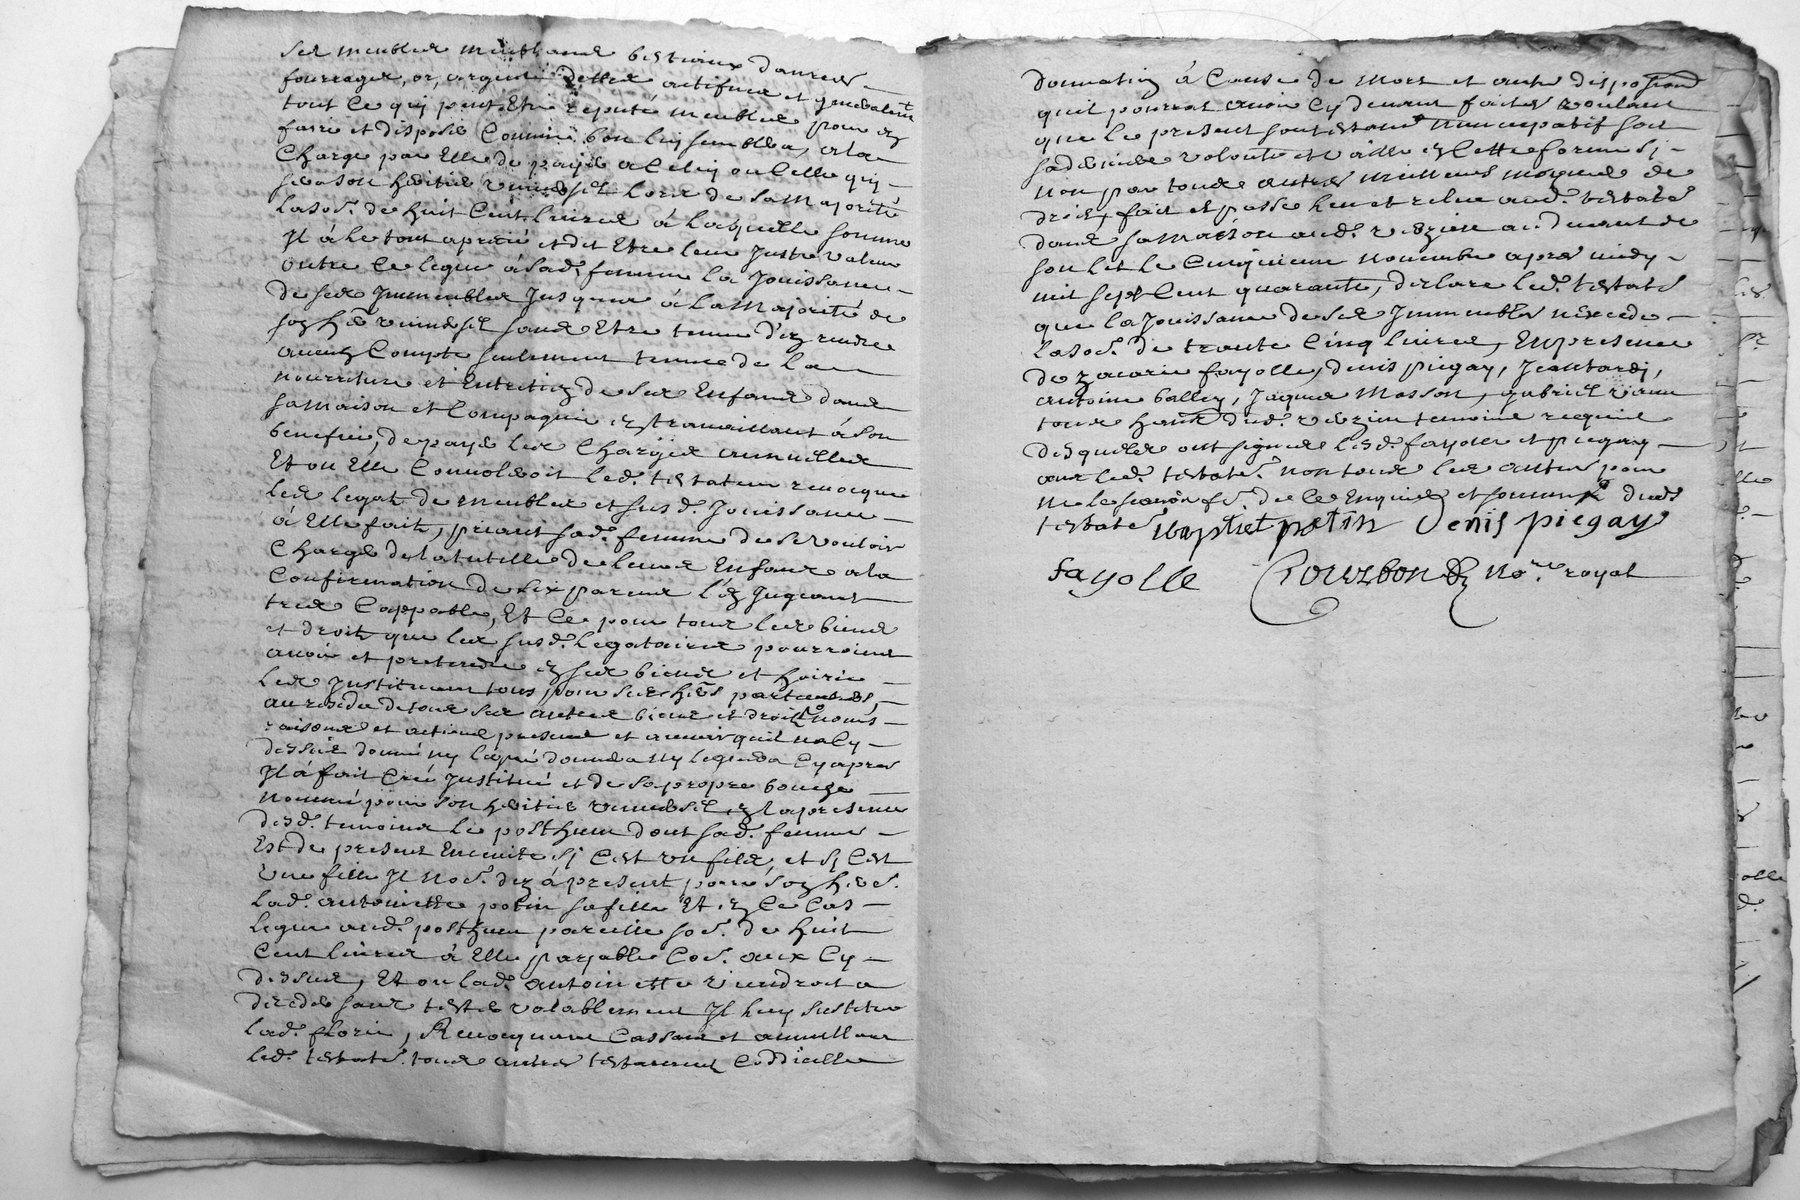 ses meubles meublants bestiaux danrées
fourrages, or, argent dettes actifves et generalemt
tout ce quj peut Etre reputé meubles pour ez
faire et disposer Comme bon luy semblera, ala
Charge par Elle de payer a celuy ou celle quj
sera son heritier universel lors de sa majorité
la so.e de huit Cent livres à laquelle somme
Jl à le tout aprecié et dit Etre leur juste valeur
outre ce legue à sad.e femme la Jouissance
de ses Jmmeubles Jusques à la majorité de
soz her universel sans Etre tenue d'ez rendre
aucuz Compte seulement tenue de la
nourriture et Entretiez de ses Enfans dans
sa maison et Compagnie ez travaillant à son
benefice, de payer les Charges annuelles
Et ou Elle Convoleroit led. testateur revocque
les legat de meubles et susd. Jouissance
à Elle fait, priant sad.e femme de se vouloir
Charger de la tutelle de leurs Enfans a la
Confirmation de six parens l'ez Jugeant
tres Cappable, Et Ce pour tous les biens
et droits que les susd. legataires pourroient
avoir et pretendre ez ses biens et hoirie
les Jnstituant tous pour ses hers particuliers,
au residu de tous ses autres biens et droits noms
raisons et actions presens et avenir quil na Cy
dessus donné ny legué donnera ny leguera Cy apres
Jl à fait Créé Jnstitué et de sa propre bouche
nommé pour son heritier universel ez la presence
desd. temoins le posthume dont sad. femme
Est de present Enceinte sj Cest un fils, et sj Cest
une fille Jl no.e dez à present pour soz her.
lad. antoinette potin sa fille Et ez Ce Cas
legue aud. posthume pareille so.e de huit
Cent livres à Elle payable Co.e aux Cy
dessus, Et ou lad. antoinette viendroit a
deceder sans tester valablement Jl luy substitue
lad. florie, Revocquant Cassant et annullant
led. testate. tous autres testament Coddicille
donnatioz à Cause de mort et autre disposition
quil pourrait avoir Cy devant faites voulant
que le present sont testament nuncupatif soit
sa derniere volonté et vaille ez cette forme sj
non par tous autres meilleurs moyens de
droit, fait et passé leu et releu aud. testate.
dans sa maison aud. verzieu au devant de
son lit le Cinquieme novembre apres midy
mil sept Cent quarante, declare led. testate.
que la Jouissance de ses Jmmeubles n'excede
la so.e de trante Cinq livres, En presence
de zacarie fayolle, denis piegay, Jean tardj,
antoine balley, Jaques masson, gabriel
tous dud. verzieu temoins requis
desquels ont signés lesd. fayolle et piegay
avec led. testate. non tous les autres pour
ne le scavoir fe. de Ce Enquis et sommés dud.
testate. baptiste potin Denis piegay
fayolle Courbon Nore royal